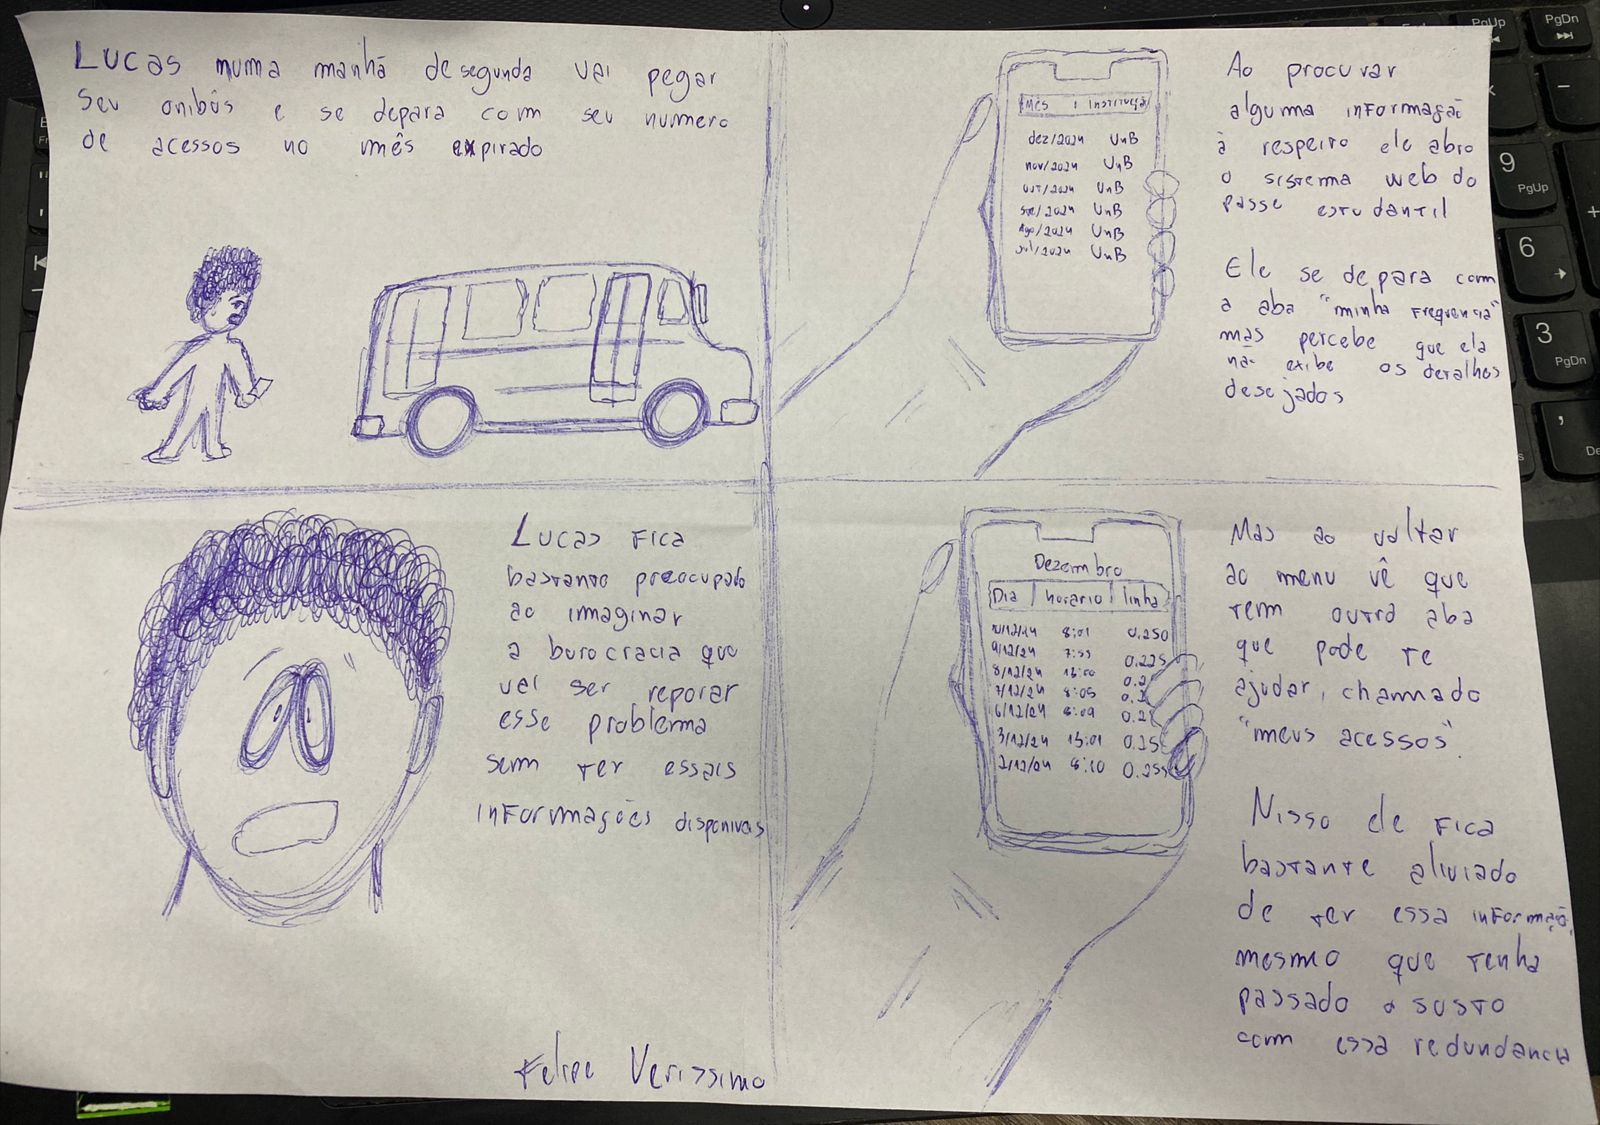 Lucas numa manhã de segunda vai pegar
seu onibûs e se depara com seu numero
de acessos no mês expirado
Mês | Instituição
dez/2024 UnB
nov/2024 UnB
out/2024 UnB
set/2024 UnB
Ago/2024 UnB
Jul/2024 UnB
Ao procurar
alguma informação
à respeito ele abre
o sistema web do
passe estudantil
Ele se depara com
a aba "minha frequencia"
mas percebe que ela
não exibe os detalhes
desejados
Lucas fica
bastante preocupado
ao imaginar
a burocracia que
vai ser reporar
esse problema
sem ter essais
informações disponivas
Felipe Verissimo
Dezembro
Dia | horario | linha
10/12/24 8:01 0.250
9/12/24 7:55 0.225
8/12/24 0.2
7/12/24 8:05 0.2
6/12/24 8:09 0.2
3/12/24 15:01 0.15
2/12/24 8:10 0.255
Mas ao voltar
ao menu vê que
tem outra aba
que pode te
ajudar, chamado
"meus acessos".
Nisso ele fica
bastante aliviado
de ter essa informação,
mesmo que tenha
passado o susto
com essa redundancia
PgUp
PgDn
9
PgUp
6
3
PgDn